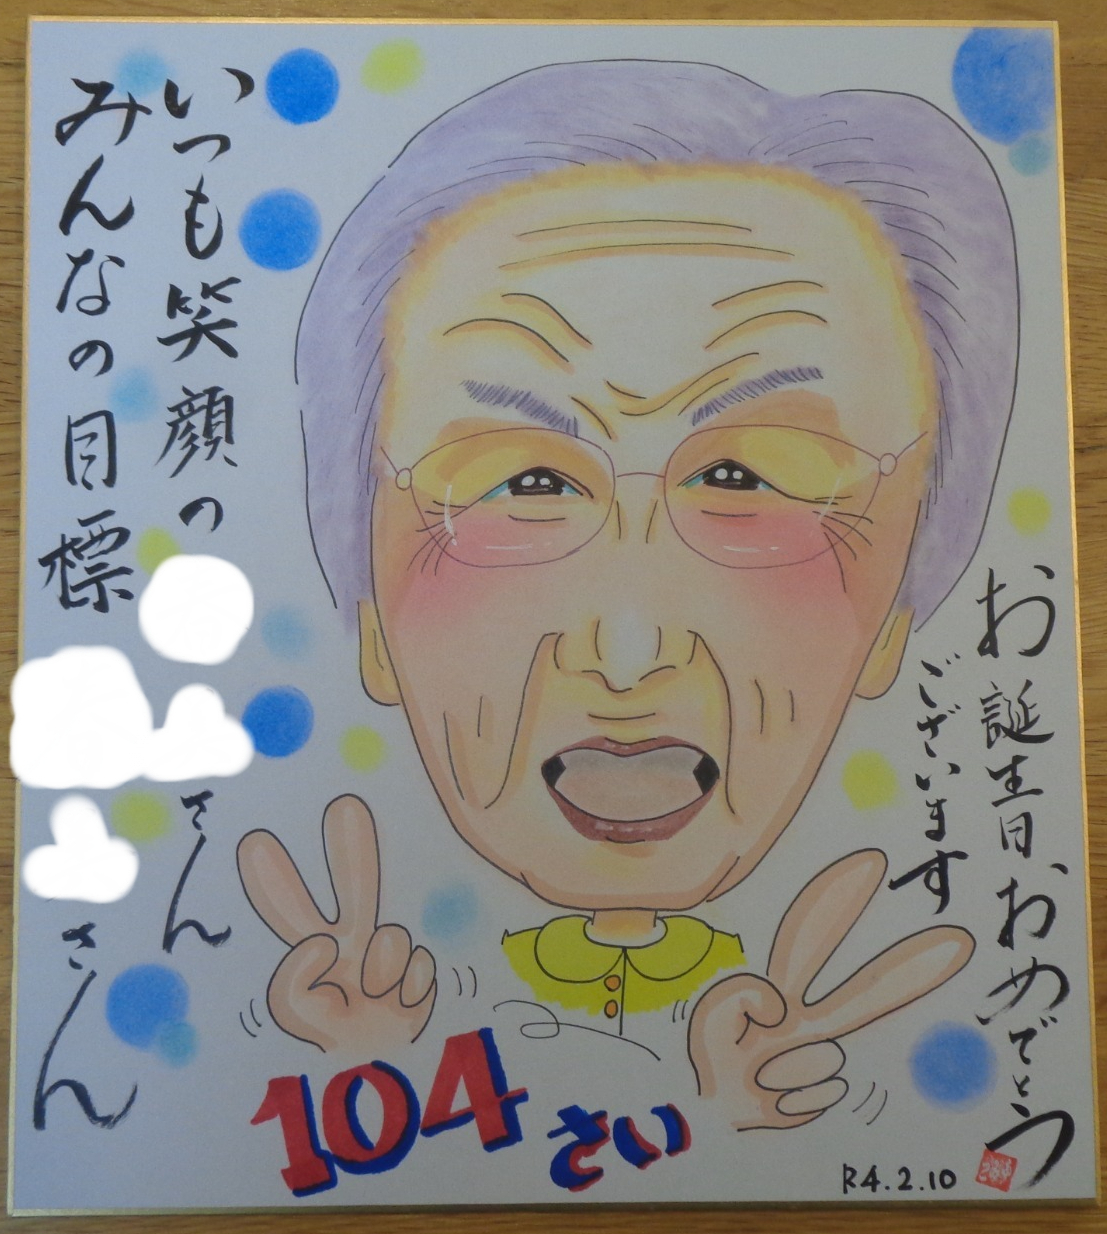 お誕生日おめでとう
ございます
いつも笑顔の
さん
みんなの目標
さん
104
さい
R4.2.10